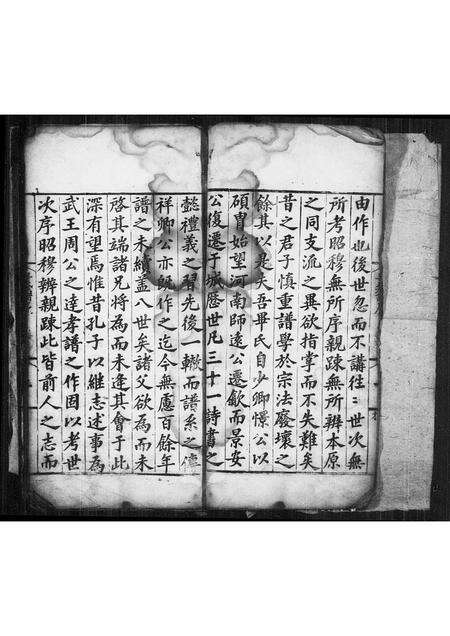 由作也後世忽而不講往〻世次無
所考昭穆無所序親踈無所辨本原
之同支流之異欲指掌而不失難矣
昔之君子慎重譜學於宗法廢壞之
餘其以是夫吾畢氏自少卿憬公以
碩胄始望河南師遠公遷歙而景安
公復遷于城歷世凡三十一詩書之
懿禮義之習先後一轍而譜系之傳
祥卿公亦既作之迄今無慮百餘年
譜之未續蓋八世矣諸父欲為而未
啓其端諸兄將為而未逢其會于此
深有望焉惟昔孔子以継志述事為
武王周公之達孝譜之作固以考世
次序昭穆辨親踈此皆前人之志而